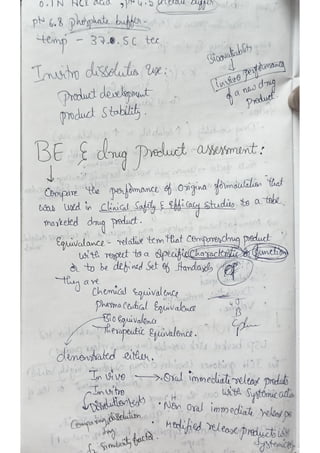 0.1N HCl acid, pH 4.5 acetate buffer
pH 6.8 phosphate buffer
temp - 37 0.5C
Invitro dissolution use:
product development
product stability.
Bioavailability
Invivo performance
of a new drug
product
BE & drug product assessment:
Compare the perfomance of origina formulation that
was used in Clinical Safety & Efficacy studies to a tobe
marketed drug product.
Equivalance - relative term that compares drug product
with respect to a specific Characteristic or function
or to be defined set of standards
They are
Chemical Equivalence
pharmaceutical Equivalence
BioEquivalence
Therapeutic Equivalence.
demonstrated either.
In vivo → Oral immediate release products
with Systemic action
In vitro
Dissolution tests
• Non oral immediate release
Comparing dissolution
• Modified release products with
Similarity factor